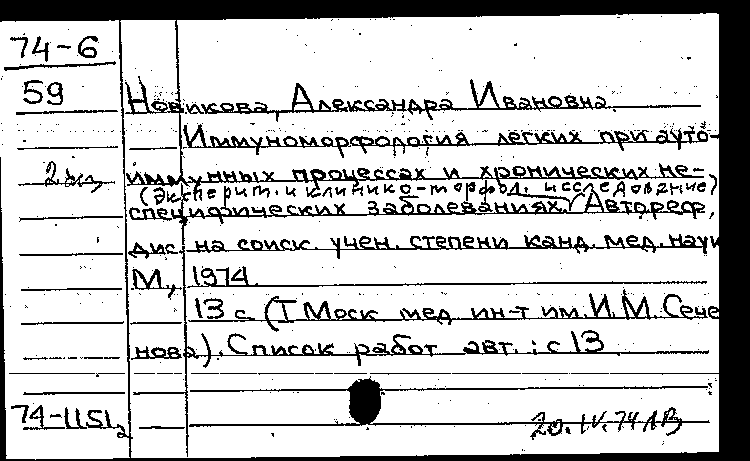 74-6
59
Новикова, Александра Ивановна.
Иммуноморфология легких при ауто-
2 экз
иммунных процессах и хронических не-
(эксперит. и клинико-морфол. исследование)
специфических заболеваниях. Автореф.
дис. на соиск. учен. степени канд. мед. наук
М., 1974.
13 с (I Моск мед ин-т им. И.М. Сече
нова). Список работ авт.: с 13
74-1151
20.IV.74 ЛВ